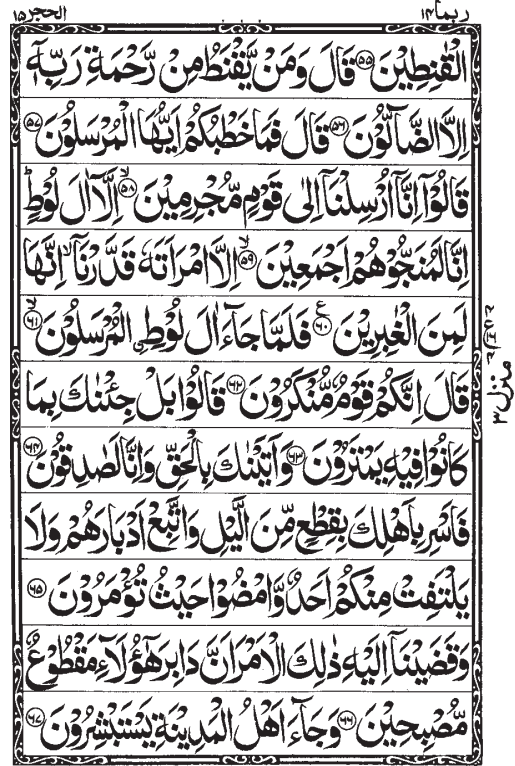 ربما ١٤
الحجر ١٥
الْقٰنِطِيْنَ ﴿۵۵﴾ قَالَ وَمَنْ يَّقْنَطُ مِنْ رَّحْمَةِ رَبِّهٖۤ
اِلَّا الضَّآلُّوْنَ ﴿۵۶﴾ قَالَ فَمَا خَطْبُكُمْ اَيُّهَا الْمُرْسَلُوْنَ ﴿۵۷﴾
قَالُوْۤا اِنَّاۤ اُرْسِلْنَاۤ اِلٰى قَوْمٍ مُّجْرِمِيْنَ ﴿۵۸﴾ۙ اِلَّاۤ اٰلَ لُوْطٍؕ
اِنَّا لَمُنَجُّوْهُمْ اَجْمَعِيْنَ ﴿۵۹﴾ۙ اِلَّا امْرَاَتَهٗ قَدَّرْنَاۤۙ اِنَّهَا
لَمِنَ الْغٰبِرِيْنَ ﴿۶۰﴾ع فَلَمَّا جَآءَ اٰلَ لُوْطِ ِ۟الْمُرْسَلُوْنَ ﴿۶۱﴾ۙ
قَالَ اِنَّكُمْ قَوْمٌ مُّنْكَرُوْنَ ﴿۶۲﴾ قَالُوْا بَلْ جِئْنٰكَ بِمَا
كَانُوْا فِيْهِ يَمْتَرُوْنَ ﴿۶۳﴾ وَاَتَيْنٰكَ بِالْحَقِّ وَاِنَّا لَصٰدِقُوْنَ ﴿۶۴﴾
فَاَسْرِ بِاَهْلِكَ بِقِطْعٍ مِّنَ الَّيْلِ وَاتَّبِعْ اَدْبَارَهُمْ وَلَا
يَلْتَفِتْ مِنْكُمْ اَحَدٌ وَّامْضُوْا حَيْثُ تُؤْمَرُوْنَ ﴿۶۵﴾
وَقَضَيْنَاۤ اِلَيْهِ ذٰلِكَ الْاَمْرَ اَنَّ دَابِرَ هٰۤؤُلَآءِ مَقْطُوْعٌ
مُّصْبِحِيْنَ ﴿۶۶﴾ وَجَآءَ اَهْلُ الْمَدِيْنَةِ يَسْتَبْشِرُوْنَ ﴿۶۷﴾
منزل ٣